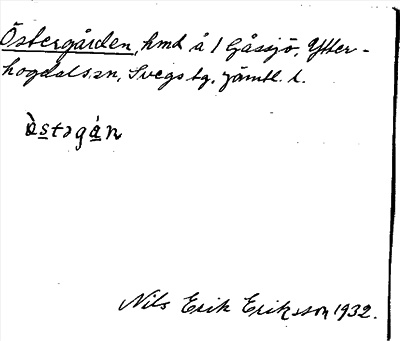 Östergården, hmd å 1 Gåssjö, Ytter-
hogdals sn, Svegs tg, Jämtl. l.
ὸstəgán
Nils Erik Eriksson 1932.